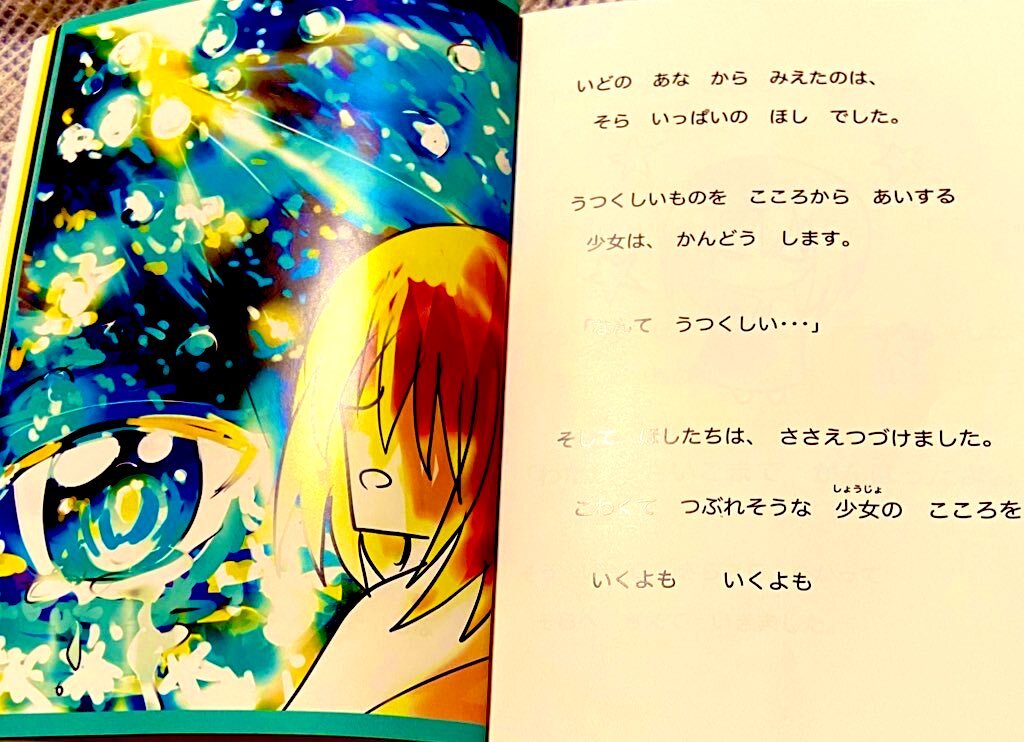 いどの あな から みえたのは、
そら いっぱいの ほし でした。
うつくしいものを こころから あいする
少女は、 かんどう します。
「なんて うつくしい・・・」
そして ほしたちは、 ささえつづけました。
つぶれそうな 少女の こころを
しょうじょ
いくよも いくよも
6